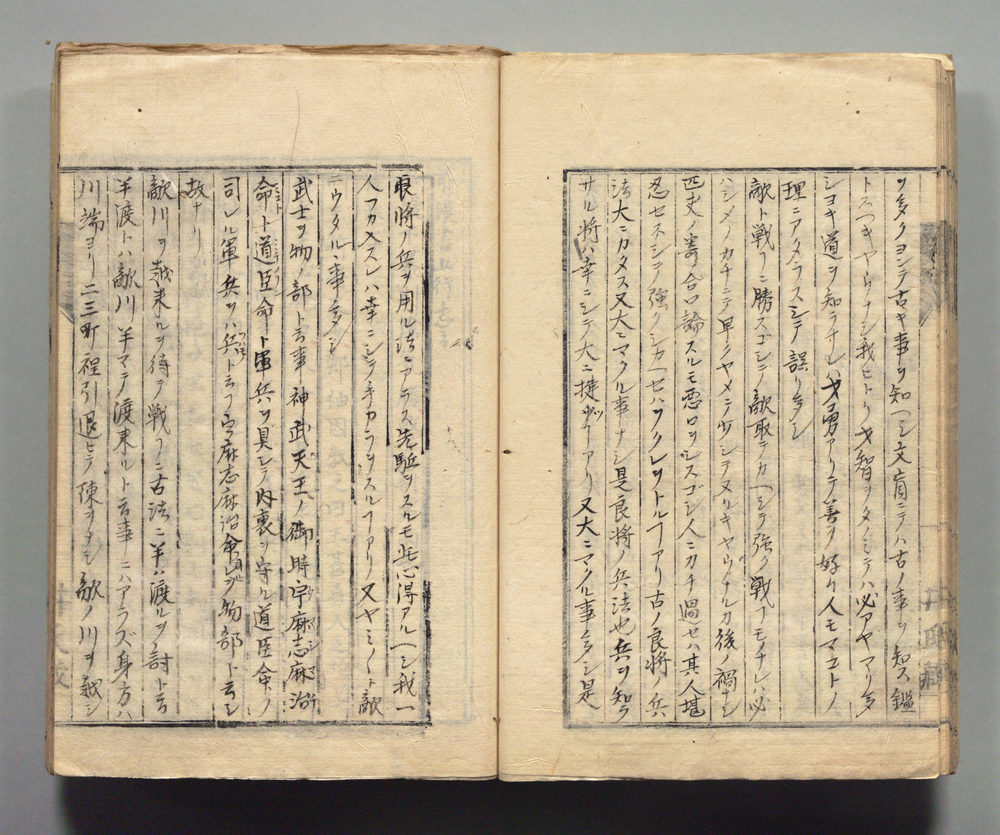 ヲ多クヨンテ古キ事ヲ知ヘシ文盲ニテハ古ノ事ヲ知ス鑑
トスヘキヤウナシ我ヒトリ才智ヲタノミテハ必アヤマリ多
シヨキ道ヲ知ラチレハ才勇アリテ善ヲ好ク人モマコトノ
理ニアタラスシテ誤り多シ
敵ト戦フニ勝スゴシテ敵取テカヘシテ強ク戦フモノナレハ必
ハシメノカチニテ早クヤメテ少シテヌルキヤウナルカ後ノ禍ナシ
匹夫ノ寄合口論スルモ悪口ヲシスゴシ人ニカチ過セハ其人堪
忍セスシテ強クシカヘセハヲクレヲトルヿアリ古ノ良将ノ兵
法大ニカタス又大ニマクル事ナシ是良将ノ兵法也兵ヲ知ラ
サル将ハ幸ニシテ大ニ捷ヿアリ又大ニマクル事多シ是
良将ノ兵ヲ用ル法ニアラス先駈ヲスルモ此心得アルヘシ我一
人フカ入スレハ幸ニシテ手カラヲスルヿアリ又ヤミ〱ト敵
ニウタルヽ事多シ
武士ヲ物ノ部ト云事神武天王ノ御時宇麻志麻治
命ト道臣命ト軍兵ヲ具シテ内裏ヲ守ル道臣命ノ
司レル軍兵ヲハ兵トヨフ宇麻志麻治命ノ
物部ト云シ
故ナリ
敵川ヲ越来ルヲ待テ戦フニ古法ニ半ハ渡ルヲ討ト云
半渡トハ敵川半マテ渡来ルト云事ニハアラズ身方ハ
川端ヨリ二三町程引退ヒテ陳ヲナシ敵ノ川ヲ越シ